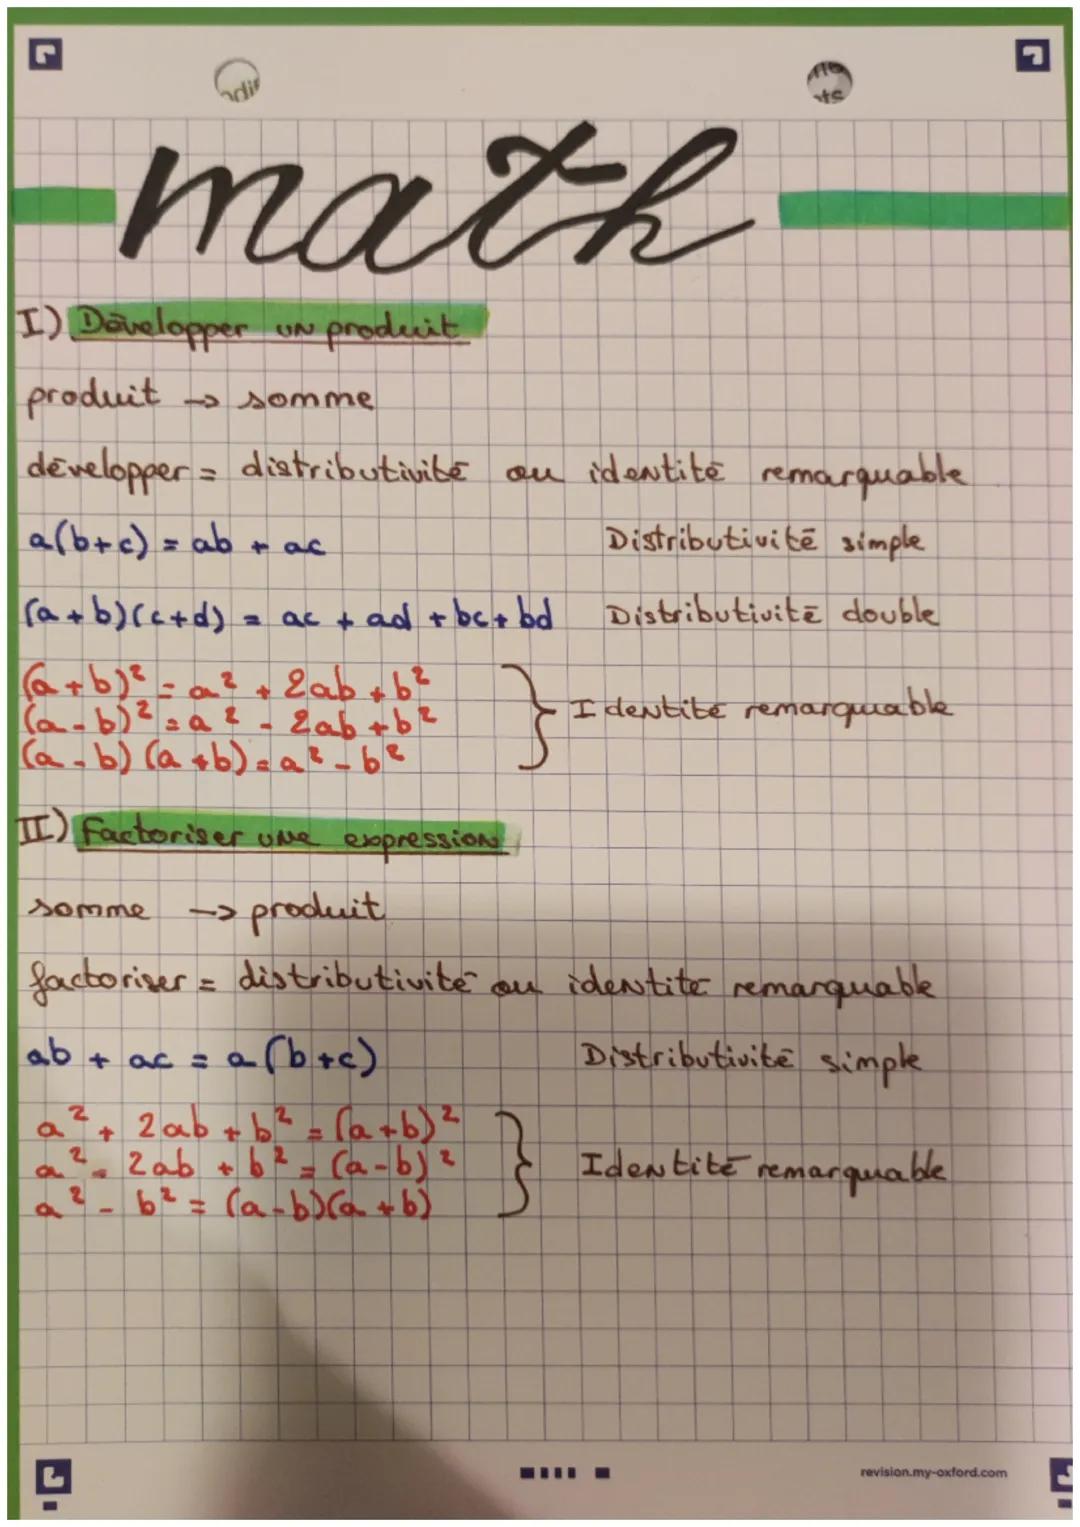 math
I) Développer un produit
produit → somme
développer = distributivité ou identité remarquable
a(b+c) = ab + ac Distributivité simple
(a+b)(c+d) = ac + ad + bc + bd Distributivité double
(a+b)² = a² + 2ab + b²
(a-b)² = a² - 2ab + b²
(a-b)(a+b) = a² - b²
Identité remarquable
II) Factoriser une expression
somme → produit
factoriser = distributivité ou identité remarquable
ab + ac = a(b+c) Distributivité simple
a² + 2ab + b² = (a+b)²
a² - 2ab + b² = (a-b)²
a² - b² = (a-b)(a+b)
Identité remarquable
revision.my-oxford.com